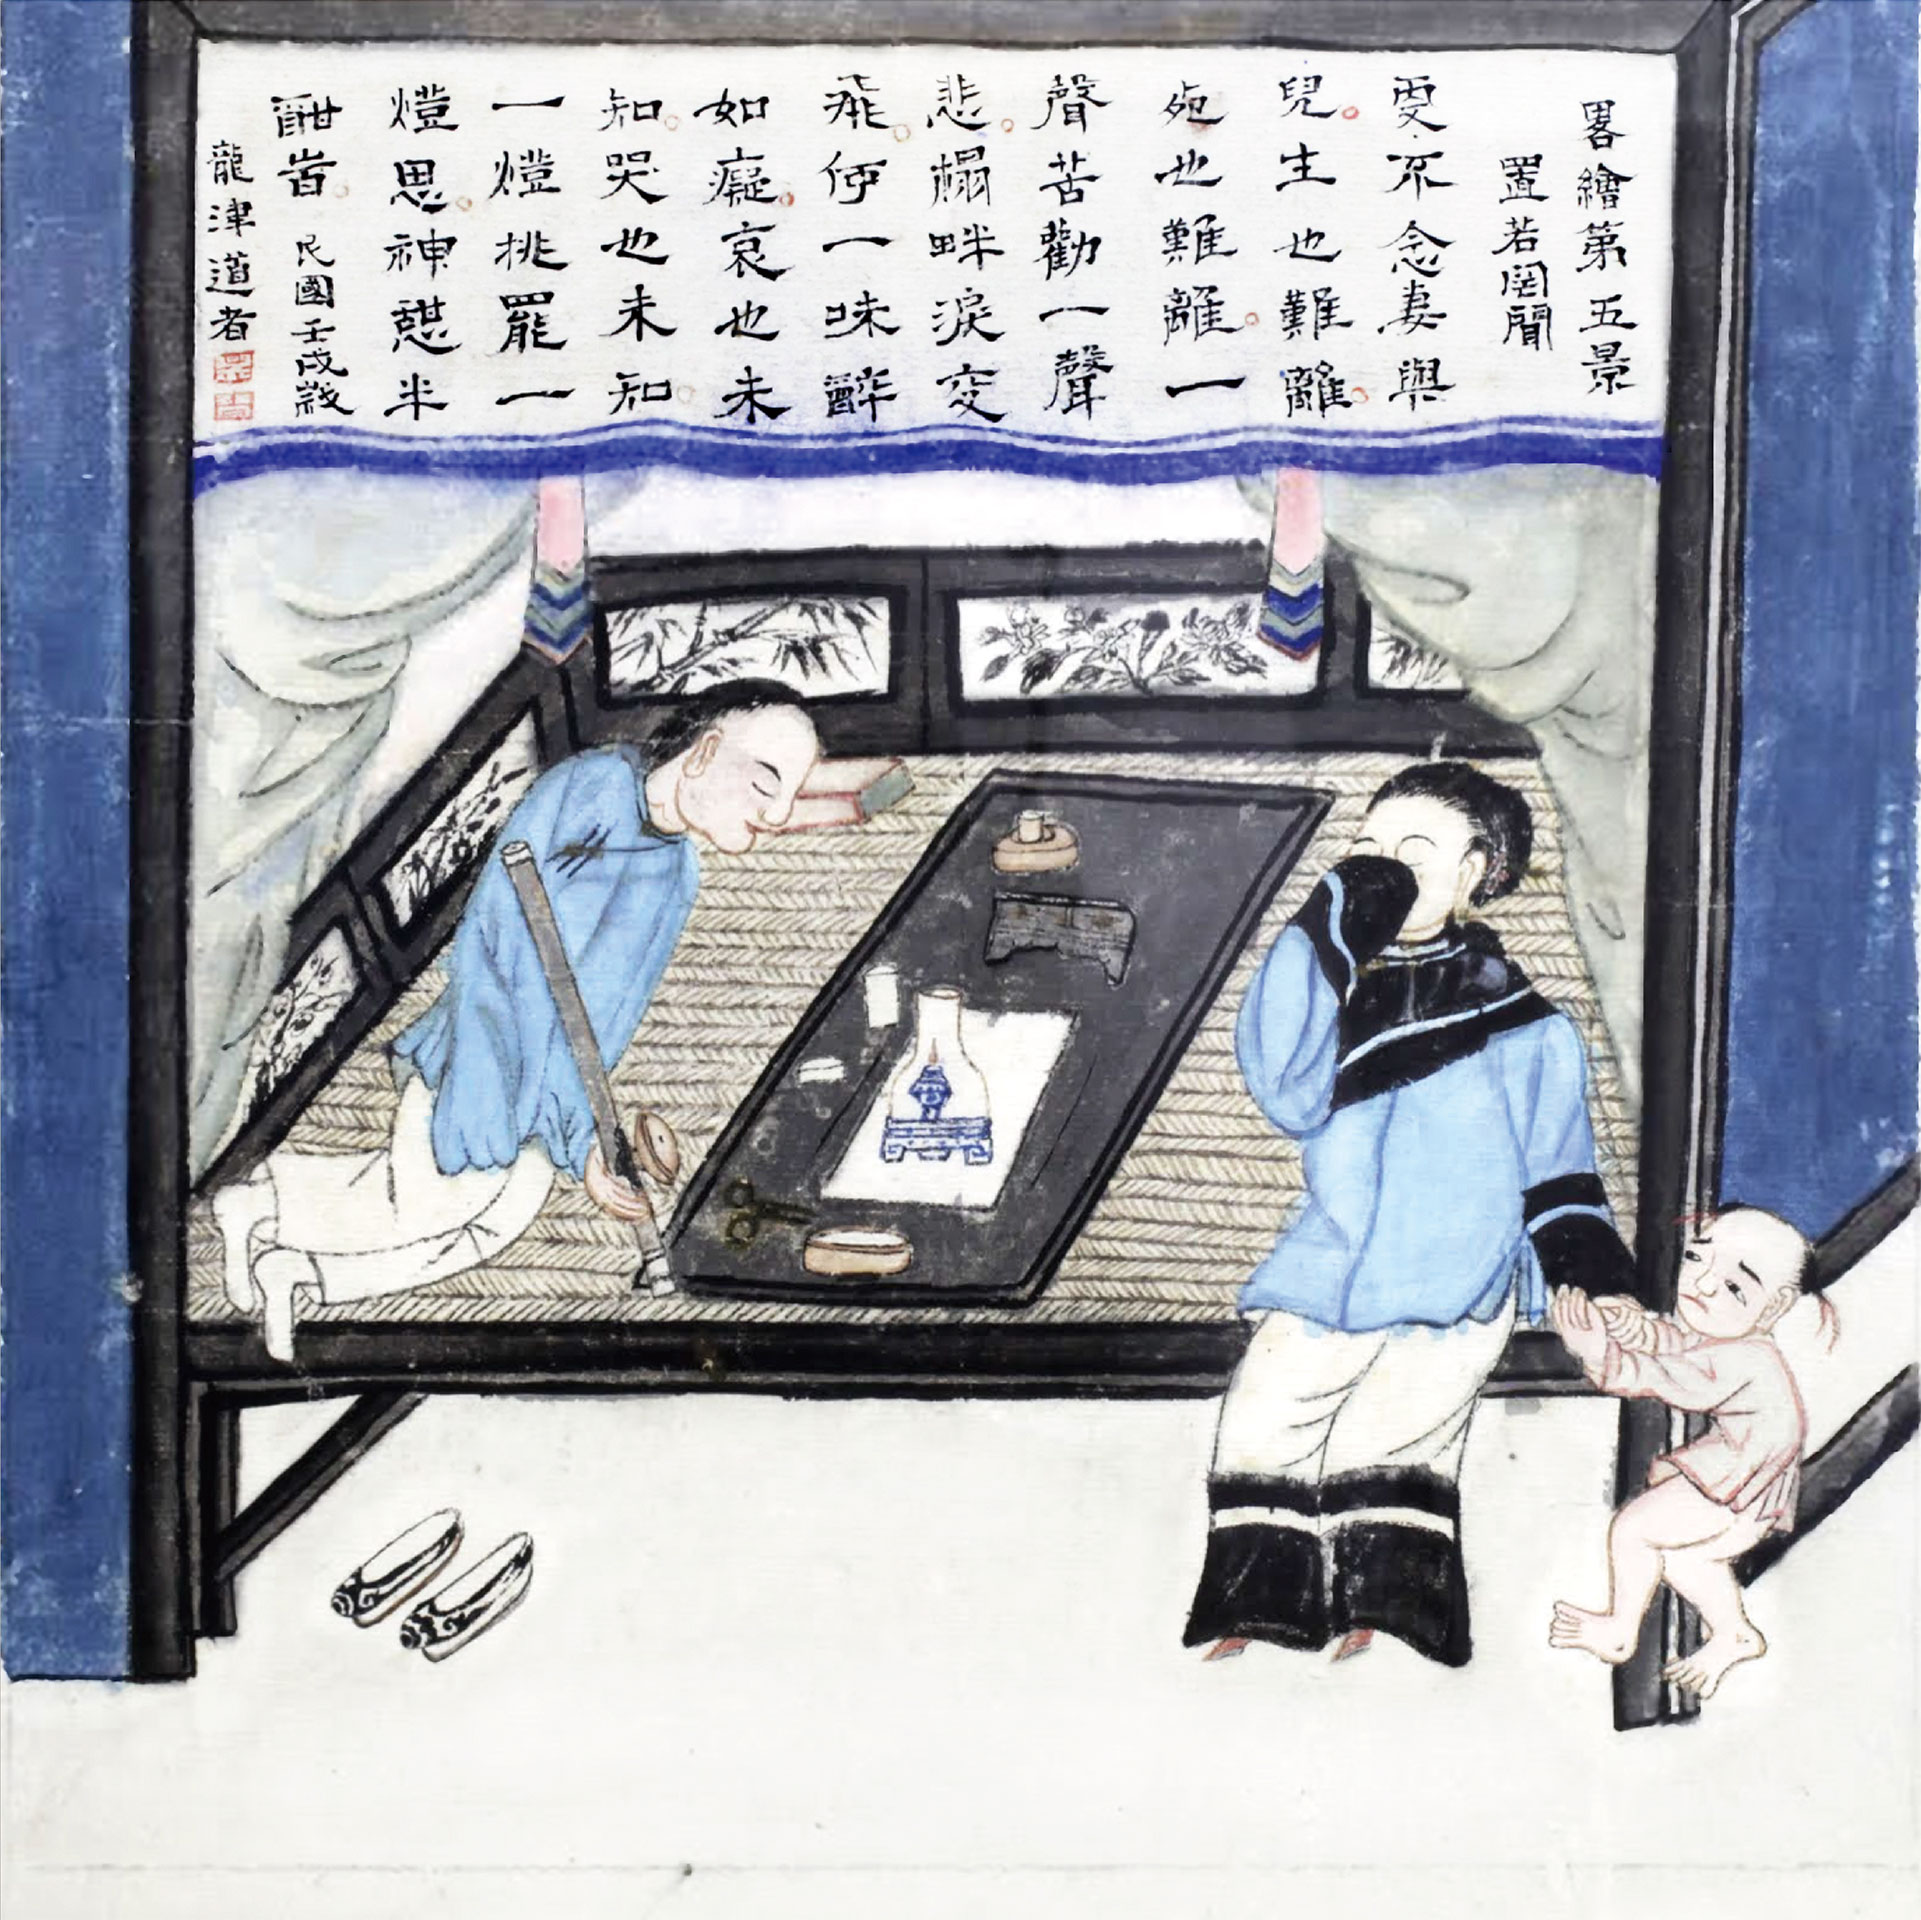 畧繪第五景
置若罔聞
更不念妻與
兒生也難離
死也難離一
聲苦勸一聲
悲榻畔淚交
飛便一味醉
如癡哀也未
知哭也未知
一燈挑罷一
燈思神憩半
酣旹 民國壬戌歲
龍津道者